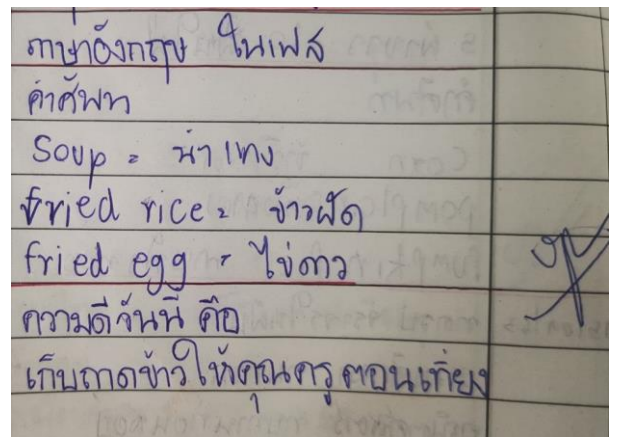 ภาษาอังกฤษ ในเฟส
คำศัพท
Soup = น้ำแกง
fried rice = ข้าวผัด
fried egg = ไข่ดาว
ความดีวันนี้ คือ
เก็บถาดข้าวให้คุณครูตอนเที่ยง